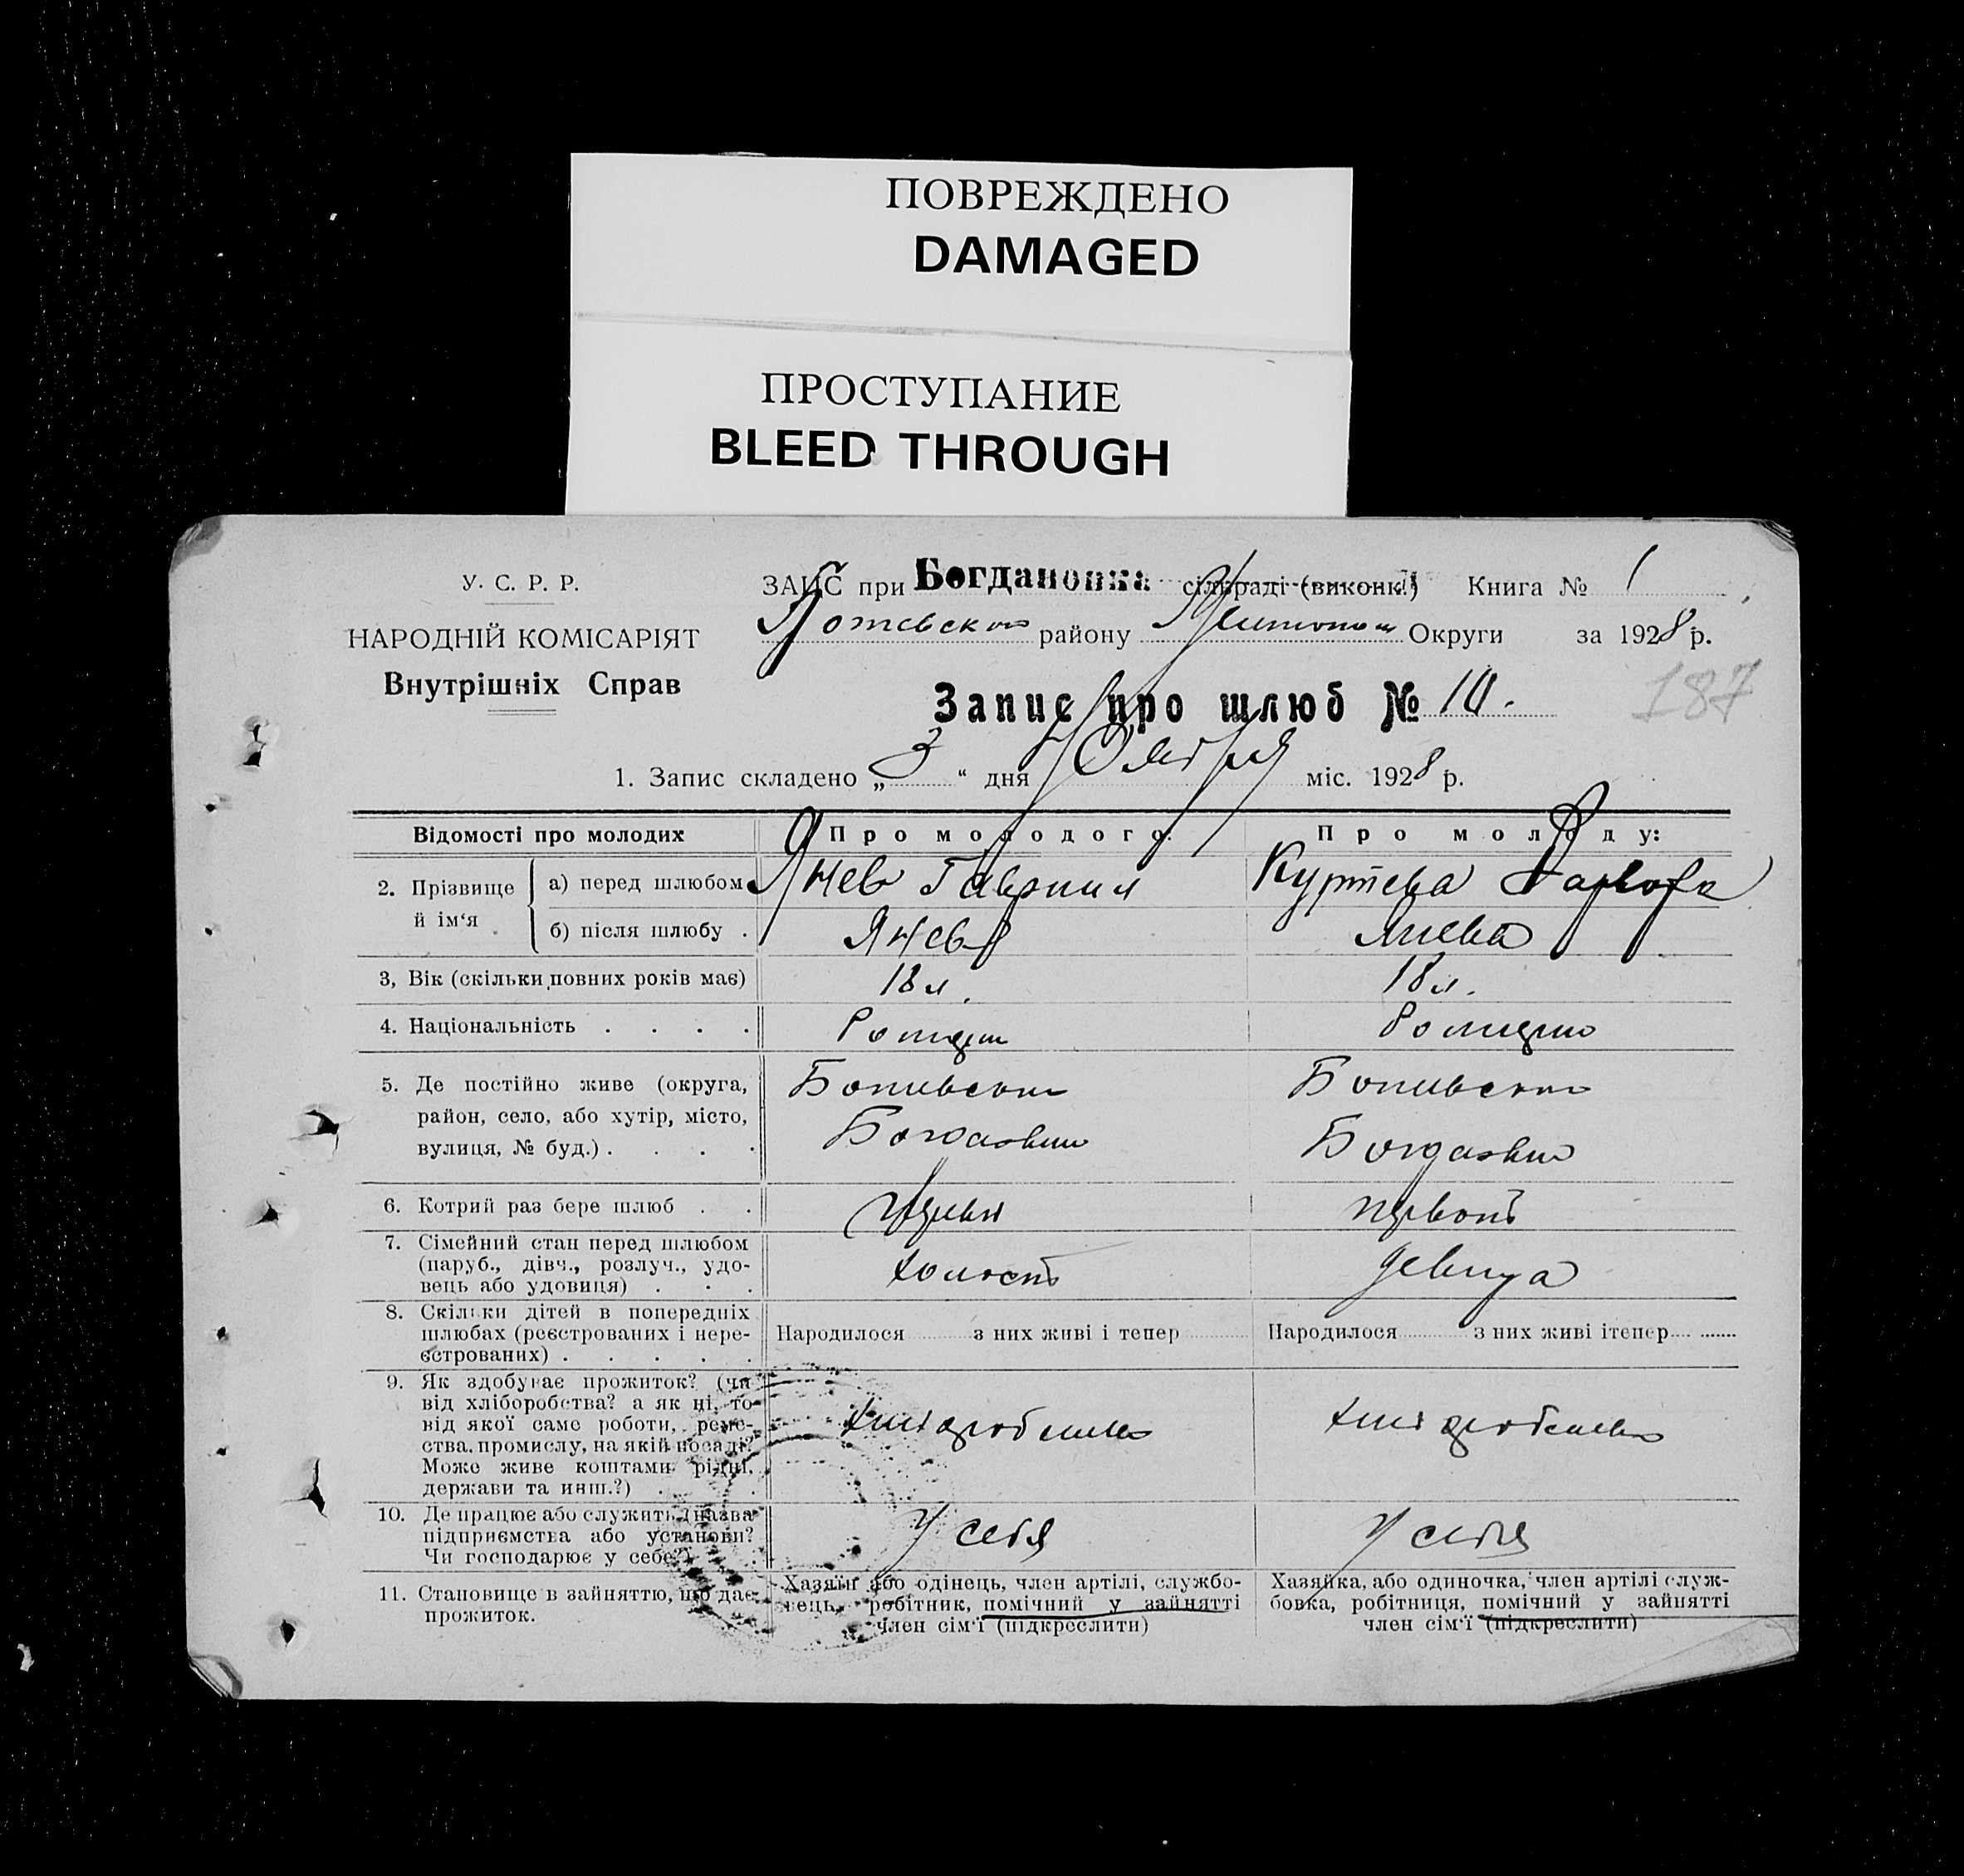 ПОВРЕЖДЕНО
DAMAGED
ПРОСТУПАНИЕ
BLEED THROUGH
У. С. Р. Р.
НАРОДНІЙ КОМІСАРІЯТ
Внутрішніх Справ
ЗАГС при Богдановка сільраді (виконк.) Книга № 1
району Округи за 1928 р.
187
Запис про шлюб № 10.
1. Запис складено „ 3 “ дня Октября міс. 1928 р.
Відомості про молодих Про молодого: Про молоду:
2. Прізвище й ім'я
а) перед шлюбом Янев Гавриил Куртева
б) після шлюбу . Янев Янева
3, Вік (скільки повних років має) 18 л. 18 л.
4. Національність . . . .
5. Де постійно живе (округа,
район, село, або хутір, місто,
вулиця, № буд.) . . . .
6. Котрий раз бере шлюб . . первый первый
7. Сімейний стан перед шлюбом
(паруб., дівч., розлуч., удо-
вець або удовиця) . . . холост девица
8. Скільки дітей в попередніх
шлюбах (реєстрованих і нере-
єстрованих) . . . . .
Народилося з них живі і тепер Народилося з них живі ітепер
9. Як здобуває прожиток? (чи
від хліборобства? а як ні, то
від якої саме роботи, реме-
ства, промислу, на якій посаді?
Може живе коштами рідні,
держави та инш.?) . .
10. Де працює або служить (назва
підприємства або установи?
Чи господарює у себе?) у себя у себя
11. Становище в зайняттю, що дає
прожиток.
Хазяїн або одінець, член артілі, службо-
вець, робітник, помічний у зайнятті
член сім'ї (підкреслити)
Хазяйка, або одиночка, член артілі служ-
бовка, робітниця, помічний у зайнятті
член сім'ї (підкреслити)